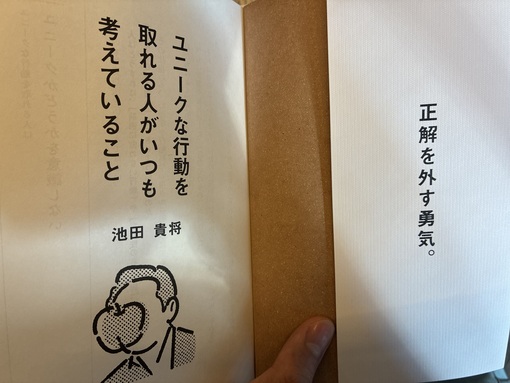 正解を外す勇気。
ユニークな行動を
取れる人がいつも
考えていること
池田 貴将